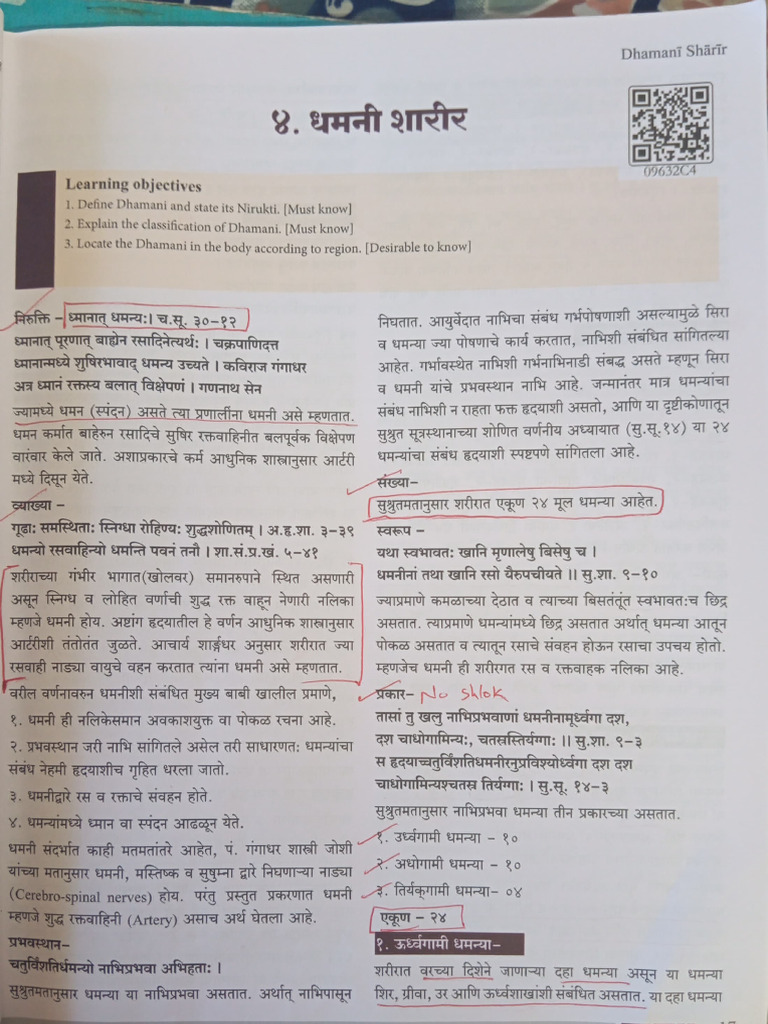 Dhamanī Shārīr
४. धमनी शारीर
09632C4
Learning objectives
1. Define Dhamani and state its Nirukti. [Must know]
2. Explain the classification of Dhamani. [Must know]
3. Locate the Dhamani in the body according to region. [Desirable to know]
निरुक्ति – ध्मानात् धमन्यः। च.सू. ३०-१२
ध्मानात् पूरणात् बाह्येन रसादिनेत्यर्थः । चक्रपाणिदत्त
ध्मानान्मध्ये शुषिरभावाद् धमन्य उच्यते । कविराज गंगाधर
अत्र ध्मानं रक्तस्य बलात् विक्षेपणं । गणनाथ सेन
ज्यामध्ये धमन (स्पंदन) असते त्या प्रणालींना धमनी असे म्हणतात.
धमन कर्मात बाहेरुन रसादिचे सुषिर रक्तवाहिनीत बलपूर्वक विक्षेपण
वारंवार केले जाते. अशाप्रकारचे कर्म आधुनिक शास्त्रानुसार आर्टरी
मध्ये दिसून येते.
व्याख्या –
गूढाः समस्थिताः स्निग्धा रोहिण्यः शुद्धशोणितम् । अ.हृ.शा. ३-३९
धमन्यो रसवाहिन्यो धमन्ति पवनं तनौ । शा.सं.प्र.खं. ५-४१
शरीराच्या गंभीर भागात(खोलवर) समानरुपाने स्थित असणारी
असून स्निग्ध व लोहित वर्णाची शुद्ध रक्त वाहून नेणारी नलिका
म्हणजे धमनी होय. अष्टांग हृदयातील हे वर्णन आधुनिक शास्त्रानुसार
आर्टरीशी तंतोतंत जुळते. आचार्य शार्ङ्गधर अनुसार शरीरात ज्या
रसवाही नाड्या वायुचे वहन करतात त्यांना धमनी असे म्हणतात.
वरील वर्णनावरुन धमनीशी संबंधित मुख्य बाबी खालील प्रमाणे,
१. धमनी ही नलिकेसमान अवकाशयुक्त वा पोकळ रचना आहे.
२. प्रभवस्थान जरी नाभि सांगितले असेल तरी साधारणतः धमन्यांचा
संबंध नेहमी हृदयाशीच गृहित धरला जातो.
३. धमनीद्वारे रस व रक्ताचे संवहन होते.
४. धमन्यांमध्ये ध्मान वा स्पंदन आढळून येते.
धमनी संदर्भात काही मतमतांतरे आहेत, पं. गंगाधर शास्त्री जोशी
यांच्या मतानुसार धमनी, मस्तिष्क व सुषुम्ना द्वारे निघणाऱ्या नाड्या
(Cerebro-spinal nerves) होय. परंतु प्रस्तुत प्रकरणात धमनी
म्हणजे शुद्ध रक्तवाहिनी (Artery) असाच अर्थ घेतला आहे.
प्रभवस्थान–
चतुर्विंशतिर्धमन्यो नाभिप्रभवा अभिहताः ।
सुश्रुतमतानुसार धमन्या या नाभिप्रभवा असतात. अर्थात् नाभिपासून
निघतात. आयुर्वेदात नाभिचा संबंध गर्भपोषणाशी असल्यामुळे सिरा
व धमन्या ज्या पोषणाचे कार्य करतात, नाभिशी संबंधित सांगितल्या
आहेत. गर्भावस्थेत नाभिशी गर्भनाभिनाडी संबद्ध असते म्हणून सिरा
व धमनी यांचे प्रभवस्थान नाभि आहे. जन्मानंतर मात्र धमन्यांचा
संबंध नाभिशी न राहता फक्त हृदयाशी असतो, आणि या दृष्टीकोणातून
सुश्रुत सूत्रस्थानाच्या शोणित वर्णनीय अध्यायात (सु.सू.१४) या २४
धमन्यांचा संबंध हृदयाशी स्पष्टपणे सांगितला आहे.
संख्या–
सुश्रुतमतानुसार शरीरात एकूण २४ मूल धमन्या आहेत.
स्वरूप –
यथा स्वभावतः खानि मृणालेषु बिसेषु च ।
धमनीनां तथा खानि रसो यैरुपचीयते ।। सु.शा. ९-१०
ज्याप्रमाणे कमळाच्या देठात व त्याच्या बिसतंतूंत स्वभावतःच छिद्र
असतात. त्याप्रमाणे धमन्यांमध्ये छिद्र असतात अर्थात् धमन्या आतून
पोकळ असतात व त्यातून रसाचे संवहन होऊन रसाचा उपचय होतो.
म्हणजेच धमनी ही शरीरगत रस व रक्तवाहक नलिका आहे.
प्रकार– No shlok
तासां तु खलु नाभिप्रभवाणां धमनीनामूर्ध्वगा दश,
दश चाधोगामिन्यः, चतस्रस्तिर्यग्गाः ।। सु.शा. ९-३
स हृदयाच्चतुर्विंशतिधमनीरनुप्रविश्योर्ध्वगा दश दश
चाधोगामिन्यश्चतस्र तिर्यग्गाः । सु.सू. १४-३
सुश्रुतमतानुसार नाभिप्रभवा धमन्या तीन प्रकारच्या असतात.
१. उर्ध्वगामी धमन्या – १०
२. अधोगामी धमन्या – १०
३. तिर्यक्‌गामी धमन्या– ०४
एकूण – २४
१. ऊर्ध्वगामी धमन्या–
शरीरात वरच्या दिशेने जाणाऱ्या दहा धमन्या असून या धमन्या
शिर, ग्रीवा, उर आणि ऊर्ध्वशाखांशी संबंधित असतात. या दहा धमन्या